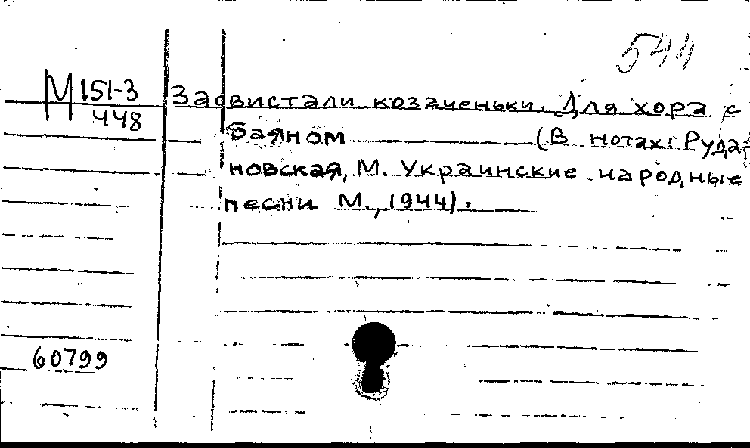 544
М 151-3
448
Засвистали козаченьки. Для хора с
баяном (В нотах: Руда-
новская, М. Украинские народные
песни М., 1944).
60799